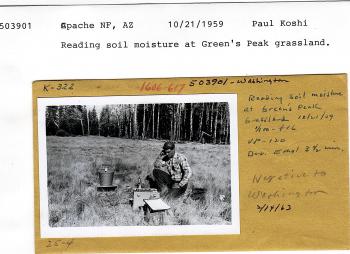 503901 Apache NF, AZ 10/21/1959 Paul Koshi
Reading soil moisture at Green's Peak grassland.
K-322
1606-617
503901-Washington
Reading Soil moisture
at Green's Peak
Grassland 10/21/59
1/100 - f16
VP-120
Dev. Ethol 3½ min.
Negative to
Washington
2/14/63
25-4